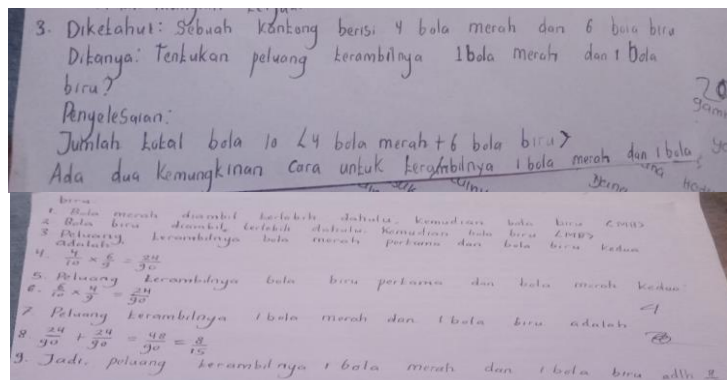 3. Diketahui: Sebuah kantong berisi 4 bola merah dan 6 bola biru
Ditanya: Tentukan peluang terambilnya 1 bola merah dan 1 bola
biru?
Penyelesaian:
Jumlah total bola 10 <4 bola merah + 6 bola biru>
Ada dua kemungkinan cara untuk terambilnya 1 bola merah dan 1 bola
biru.
1. Bola merah diambil terlebih dahulu. Kemudian bola biru <MB>
2. Bola biru diambil terlebih dahulu. Kemudian bola biru <MB>
3 Peluang terambilnya bola merah pertama dan bola biru kedua
adalah
4. 4/10 × 6/9 = 24/90
5. Peluang terambilnya bola biru pertama dan bola merah kedua
6. 6/10 × 4/9 = 24/90
7. Peluang terambilnya 1 bola merah dan 1 bola biru adalah
8 24/90 + 24/90 = 48/90 = 8/15
9. Jadi, peluang terambilnya 1 bola merah dan 1 bola biru adlh
20
gam